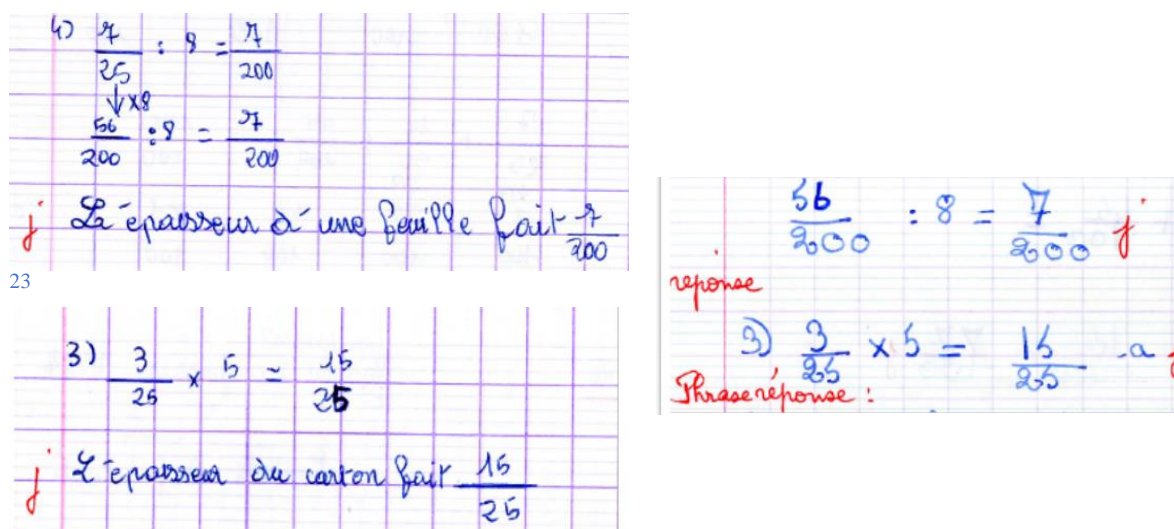 4) 7/25 : 8 = 7/200
↓ x8
56/200 : 8 = 7/200
j L'épaisseur d'une feuille fait 7/200
23
3) 3/25 x 5 = 15/25
j L'épaisseur du carton fait 15/25
56/200 : 8 = 7/200 j
reponse
3) 3/25 x 5 = 15/25 -a
Phrase réponse :